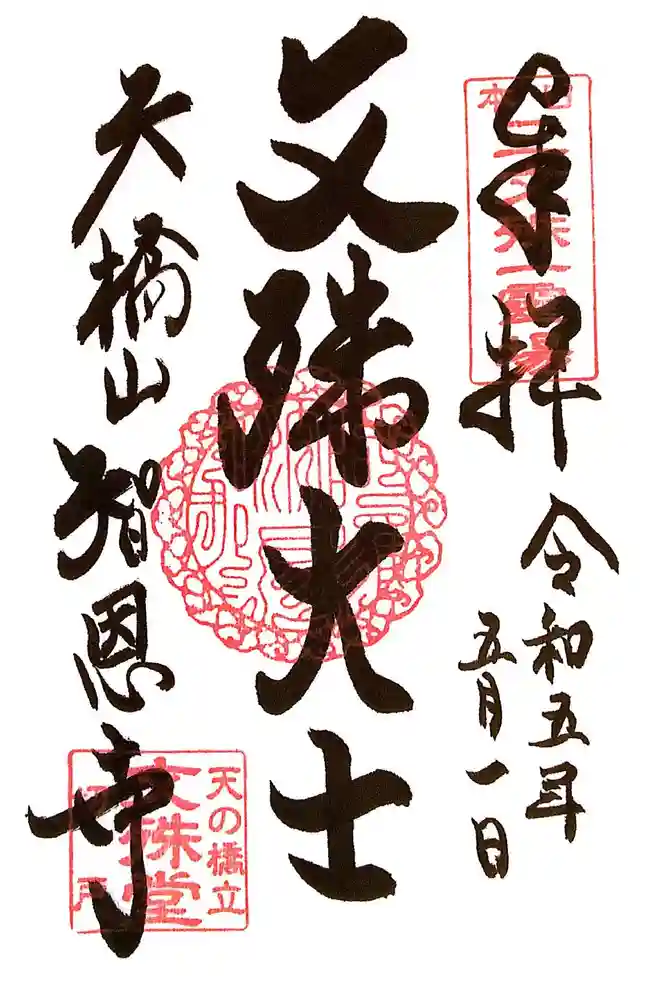 奉拝
令和五年
五月一日
文殊大士
天橋山智恩寺
日本三文殊第一霊場
天の橋立
文殊堂